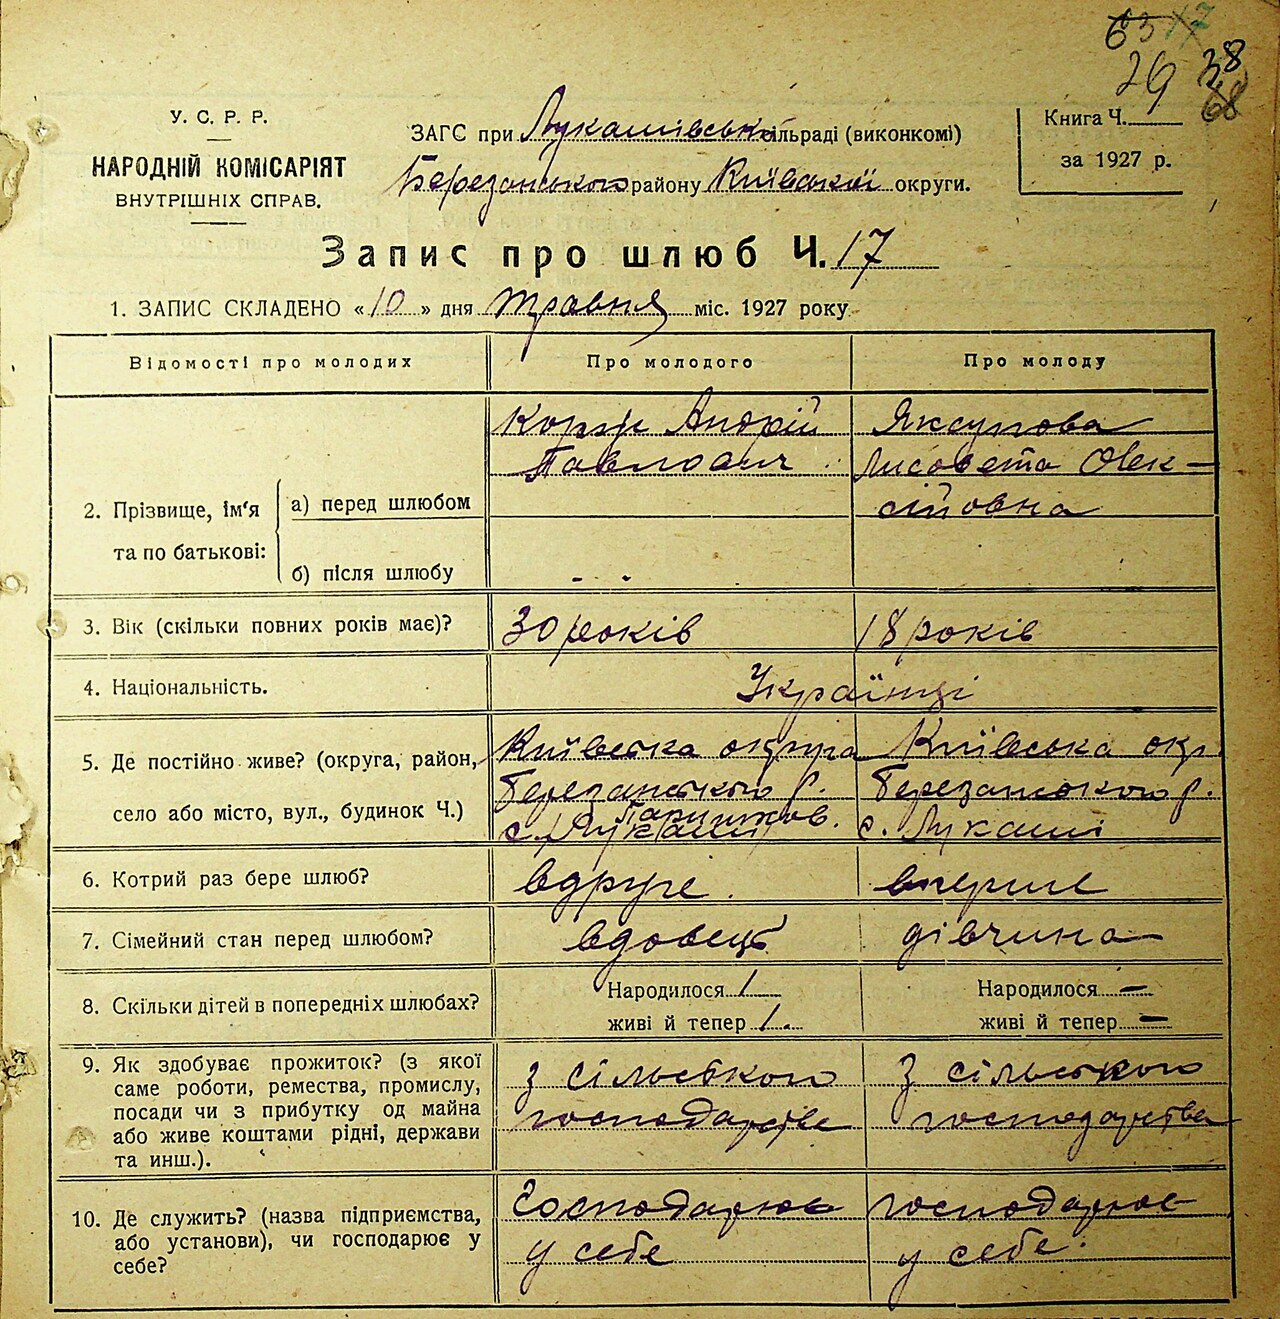 63 17
29 38
68
У. С. Р. Р.
НАРОДНІЙ КОМІСАРІЯТ
ВНУТРІШНІХ СПРАВ.
ЗАГС при Лукашівській сільраді (виконкомі)
Березанського району Київської округи.
Книга Ч.
за 1927 р.
Запис про шлюб Ч. 17
1. ЗАПИС СКЛАДЕНО «10» дня травня міс. 1927 року
Відомості про молодих Про молодого Про молоду
2. Прізвище, ім'я та по батькові:
а) перед шлюбом
б) після шлюбу
Корж Андрій
Павлович
Лисовета Олек-
сійовна
3. Вік (скільки повних років має)? 30 років 18 років
4. Національність. Українці
5. Де постійно живе? (округа, район,
село або місто, вул., будинок Ч.)
Київська округа
Березанського р.
с. Лукаші
Київська окр.
Березанського р.
с. Лукаші
6. Котрий раз бере шлюб? вдруге вперше
7. Сімейний стан перед шлюбом? вдовець дівчина
8. Скільки дітей в попередніх шлюбах?
Народилося 1
живі й тепер 1.
Народилося —
живі й тепер —
9. Як здобуває прожиток? (з якої
саме роботи, ремества, промислу,
посади чи з прибутку од майна
або живе коштами рідні, держави
та инш.).
З сільського
господарства
З сільського
господарства
10. Де служить? (назва підприємства,
або установи), чи господарює у
себе?
Господарює
у себе
господарює
у себе.